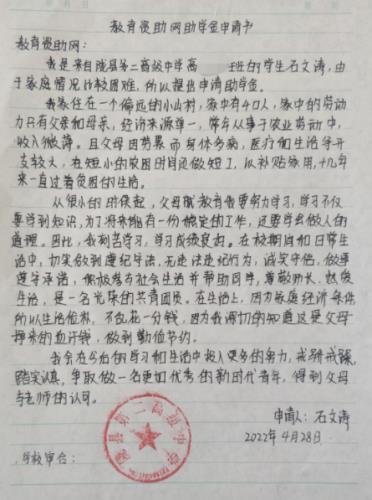 教育资助网助学金申请书
教育资助网：
我是来自陇县第二高级中学高 班的学生石文涛，由
于家庭情况比较困难，所以提出申请助学金。
我家住在一个偏远的小山村，家中有4口人，家中的劳动
力只有父亲和母亲，经济来源单一，常年从事于农业劳动中，
收入微薄。且父母因劳累而身体多病，医疗和生活等开
支较大，在短小的农闲时间还做短工，以补贴家用，十几年
来一直过着贫困的生活。
从很小的时候起，父母就教育我要努力学习，学习不仅
要学到知识，为了将来能有一份稳定的工作，还要学会做人的
道理。因此，我刻苦学习，学习成绩良好。在校期间和日常生
活中，切实做到遵纪守法，无违法违纪行为，诚实守信，做
道守承诺，积极参与社会生活并帮助同学，尊敬师长，热爱
生活，是一名光荣的共青团员。在生活上，因为家庭经济条件
所以生活俭朴，不乱花一分钱，因为我深切的知道这是父母
挣来的血汗钱，做到勤俭节约。
我会在今后的学习和生活中投入更多的努力，戒骄戒躁，
踏实认真，争取做一名更加优秀的新时代青年，得到父母
与老师的认可。
申请人：石文涛
2022年4月28日
陇县第二高级中学
学校审合：